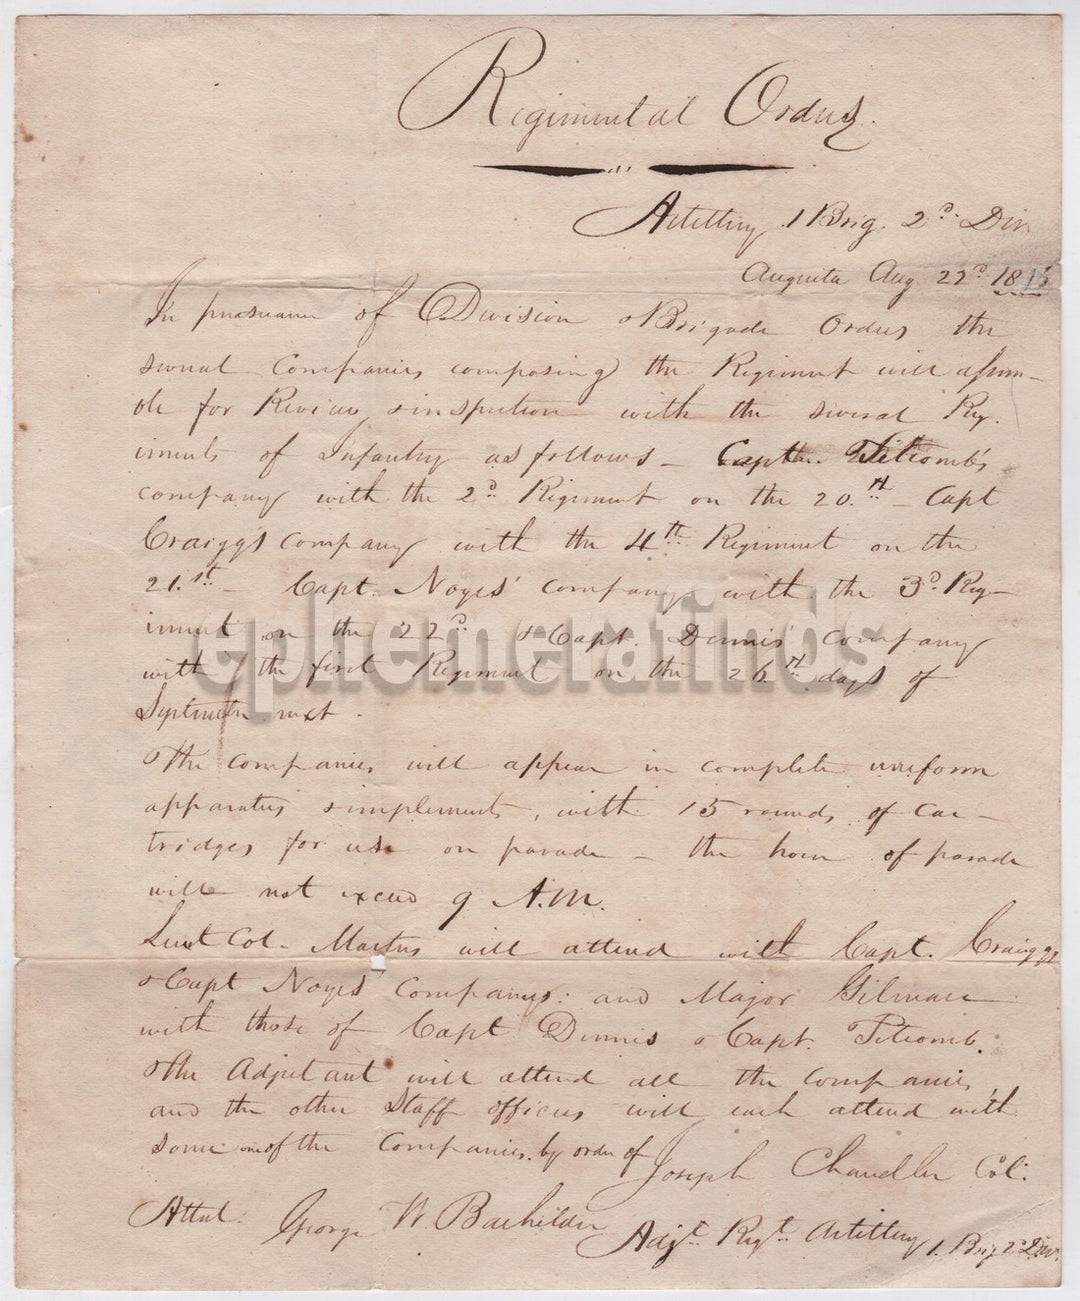 Regimental Orders.
Artillery 1 Brig. 2d. Div.
Augusta Aug. 22d. 18
In pursuance of Division & Brigade Orders the
several Companies composing the Regiment will assem-
ble for Review & inspection with the several Reg-
iments of Infantry as follows - Capt. Titcomb's
company with the 2d Regiment on the 20.th - Capt
Craigg's company with the 4th Regiment on the
21.st - Capt. Noyes' company with the 3d Reg-
iment on the 22d. & Capt. Dennis' company
with the first Regiment on the 26th days of
September next.
The companies will appear in complete uniform
apparatus & implements, with 15 rounds of car-
tridges for use on parade - the hour of parade
will not exceed 9 A.M.
Lieut Col. will attend with Capt. Craigg's
& Capt Noyes' Companys: and Major Gilman
with those of Capt Dennis & Capt. Titcomb.
The Adjutant will attend all the companies
and the other Staff officers will each attend with
some one of the Companies. by order of
Joseph Chandler Col.
Attest. George W. Bachelder Adjt. Regt. Artillery 1. Brig 2d Div.
ephemerafinds